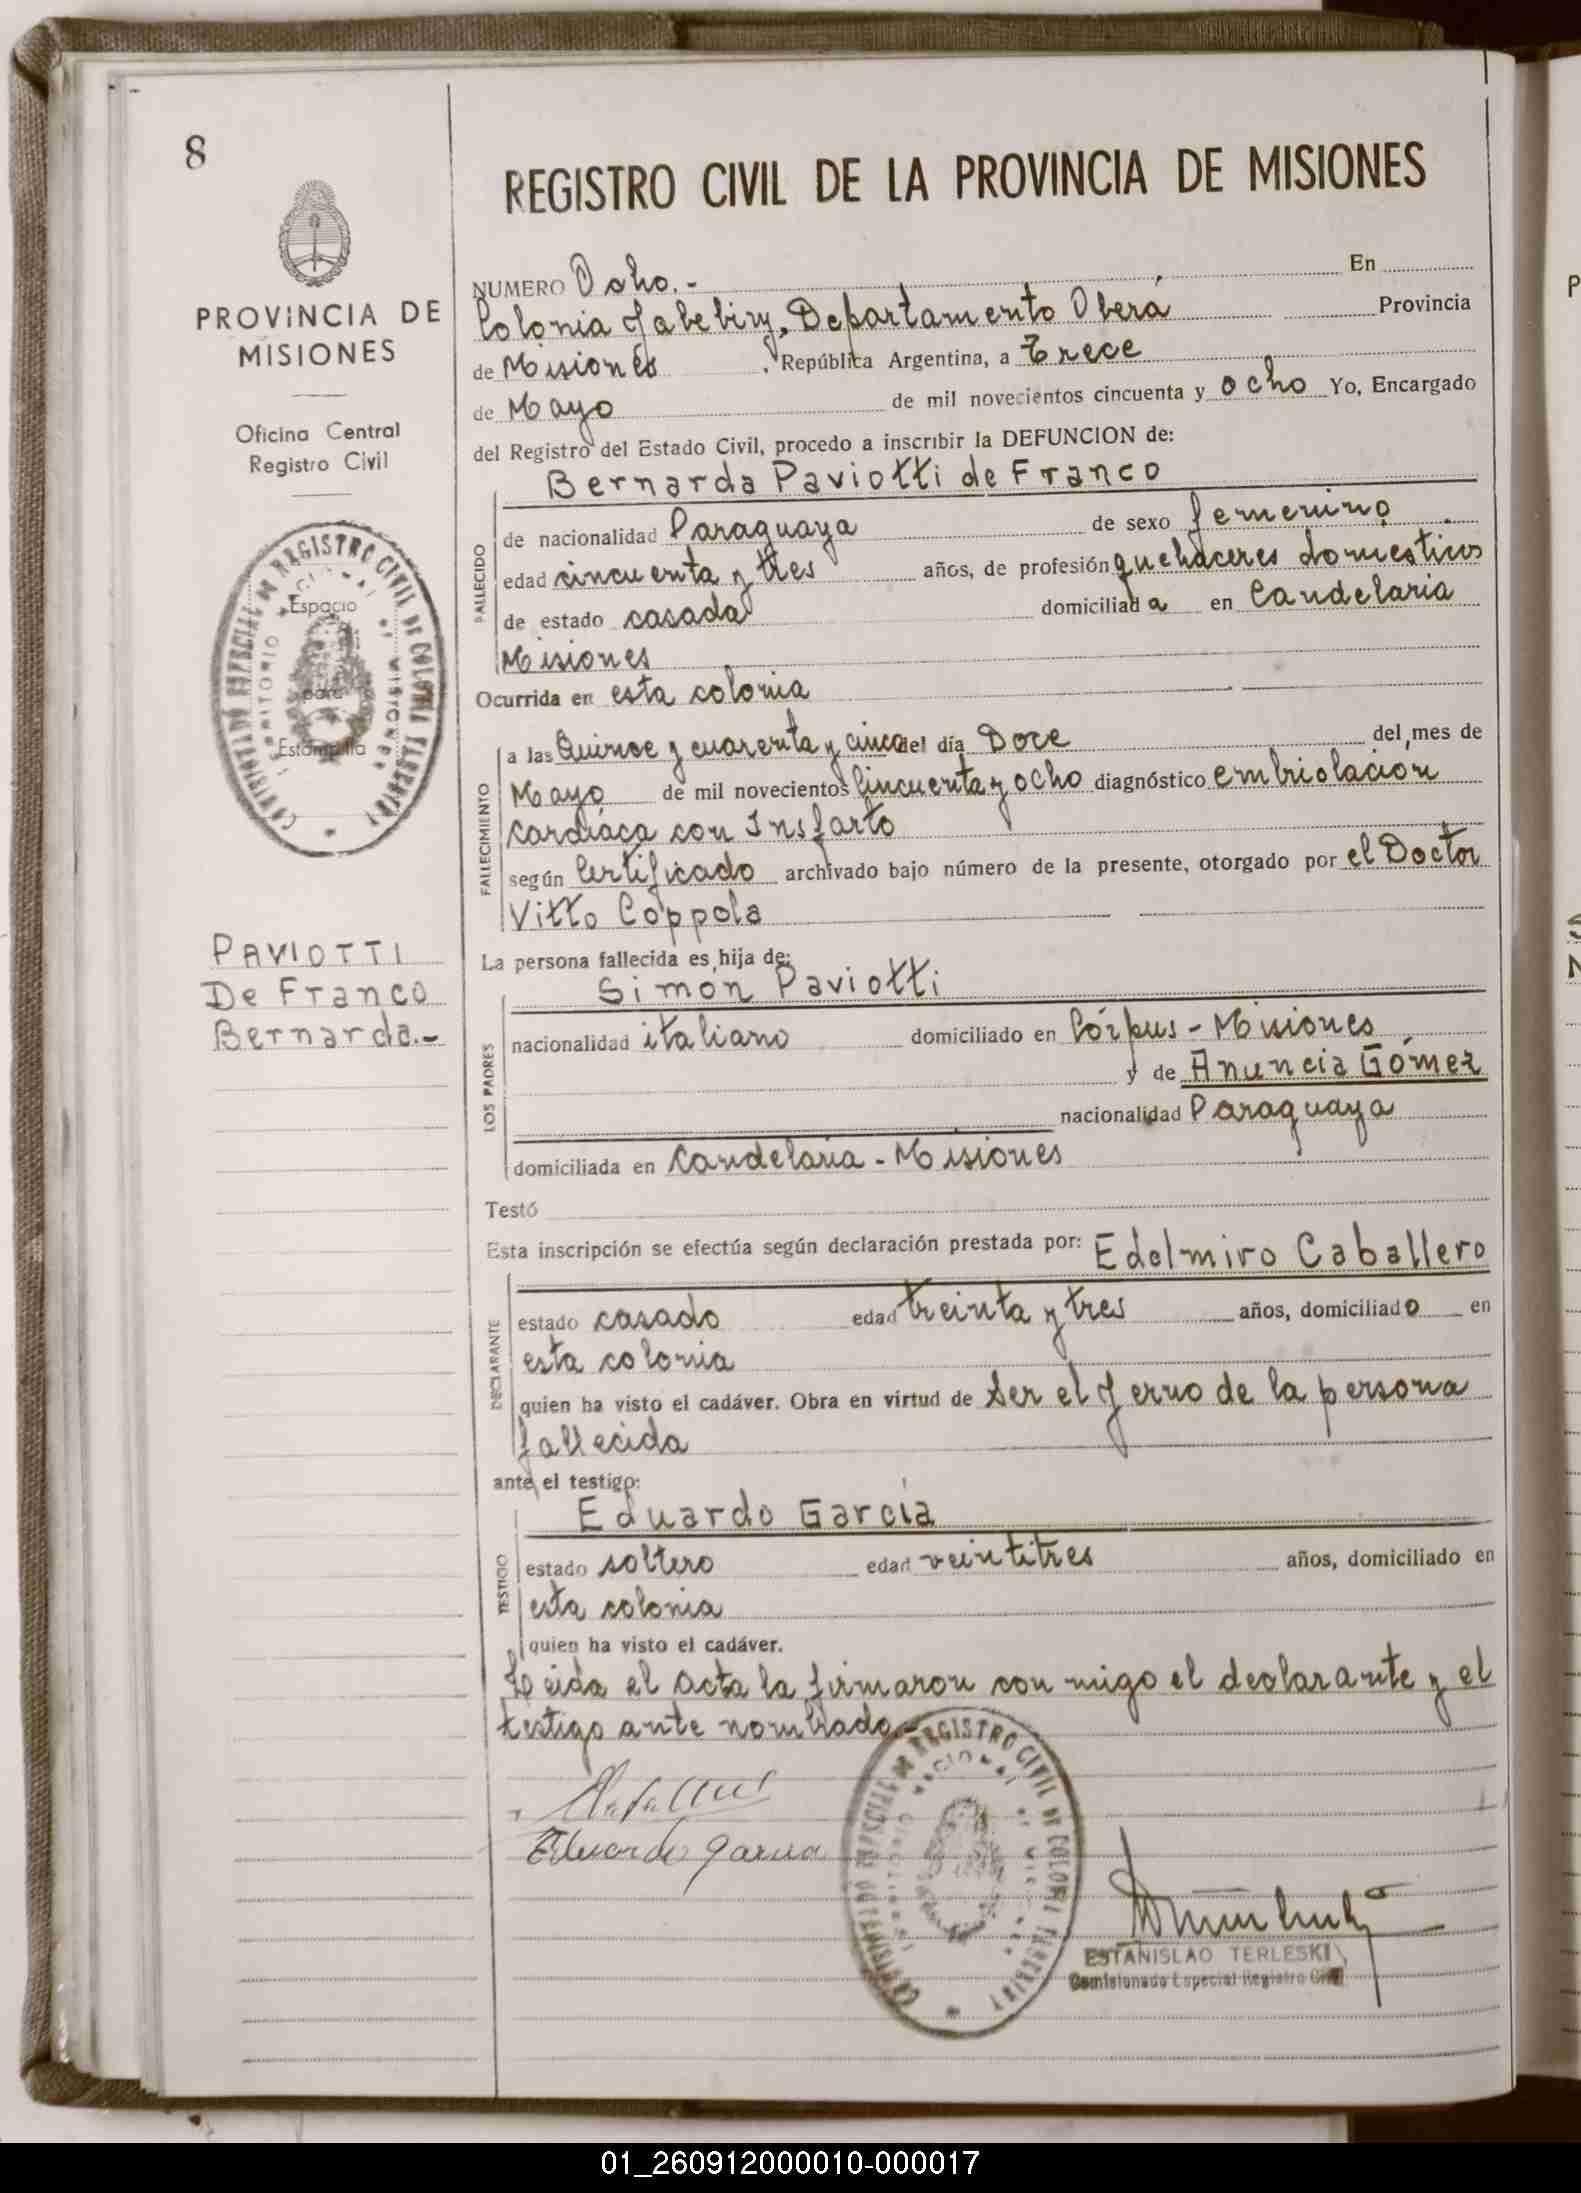 8
PROVINCIA DE
MISIONES
Oficina Central
Registro Civil
COMISIONADO ESPECIAL DE REGISTRO CIVIL DE COLONIA YABEBIRY
TERRITORIO NACIONAL DE MISIONES
Espacio
para
Estampilla
PAVIOTTI
De Franco
Bernarda.-
REGISTRO CIVIL DE LA PROVINCIA DE MISIONES
NUMERO Ocho.- En
Colonia Yabebiry, Departamento Oberá Provincia
de Misiones, República Argentina, a Trece
de Mayo de mil novecientos cincuenta y ocho Yo, Encargado
del Registro del Estado Civil, procedo a inscribir la DEFUNCION de:
Bernarda Paviotti de Franco
FALLECIDO
de nacionalidad Paraguaya de sexo femenino
edad cincuenta y tres años, de profesión quehaceres domesticos
de estado casada domiciliada en Candelaria
Misiones
Ocurrida en esta colonia
FALLECIMIENTO
a las Quince y cuarenta y cinco del día Doce del mes de
Mayo de mil novecientos Cincuenta y ocho diagnóstico embriolacion
cardiaca con Insfarto
según Certificado archivado bajo número de la presente, otorgado por el Doctor
Vitto Coppola
La persona fallecida es hija de:
Simon Paviotti
LOS PADRES
nacionalidad italiano domiciliado en Córpus - Misiones
y de Anuncia Gómez
nacionalidad Paraguaya
domiciliada en Candelaria - Misiones
Testó
Esta inscripción se efectúa según declaración prestada por: Edelmiro Caballero
DECLARANTE
estado casado edad treinta y tres años, domiciliado en
esta colonia
quien ha visto el cadáver. Obra en virtud de ser el yerno de la persona
fallecida
ante el testigo:
Eduardo García
TESTIGO
estado soltero edad veintitres años, domiciliado en
esta colonia
quien ha visto el cadáver.
Leida el acta la firmaron con migo el declarante y el
testigo ante nombrado.-
Eduardo Garcia
COMISIONADO ESPECIAL DE REGISTRO CIVIL DE COLONIA YABEBIRY
TERRITORIO NACIONAL DE MISIONES
ESTANISLAO TERLESKI
Comisionado Especial Registro Civil
01_260912000010-000017